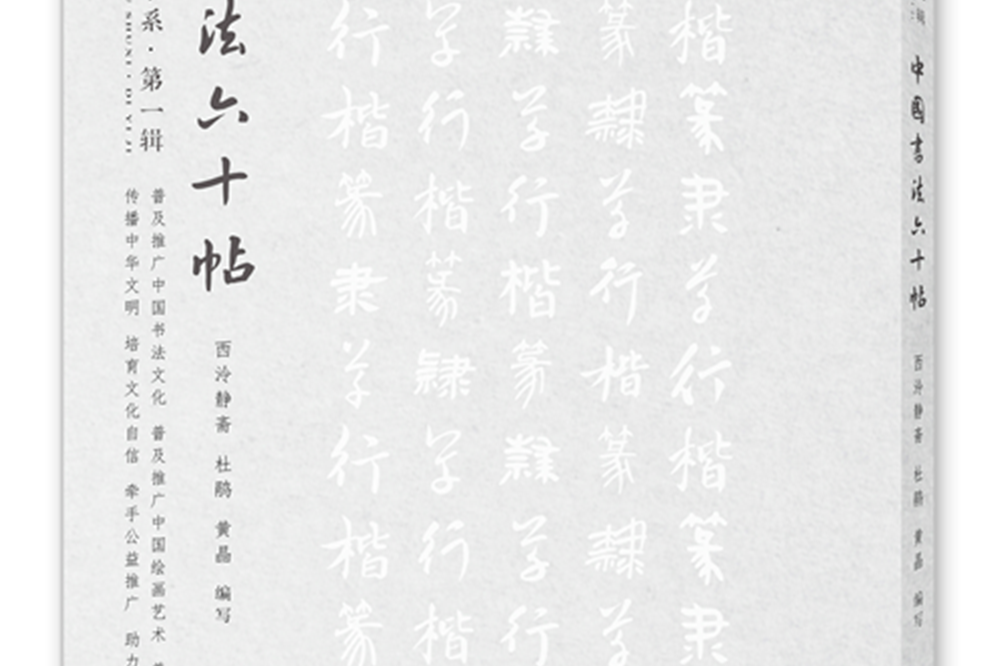 中國書法六十帖
西泠静斋 杜鹃 黄晶 编写
楷篆隶草行楷篆隶
篆隸草行楷篆隸草
隸草行楷篆隸草行
草行楷篆隸草行楷
行楷篆隶草行楷篆
法六十帖
西泠静斋 杜鹃 黄晶 编写
系·第一辑
SHUXI · DI YI JI
普及推广中国书法文化 普及推广中国绘画艺术
传播中华文明 培育文化自信 牵手公益推广 助力